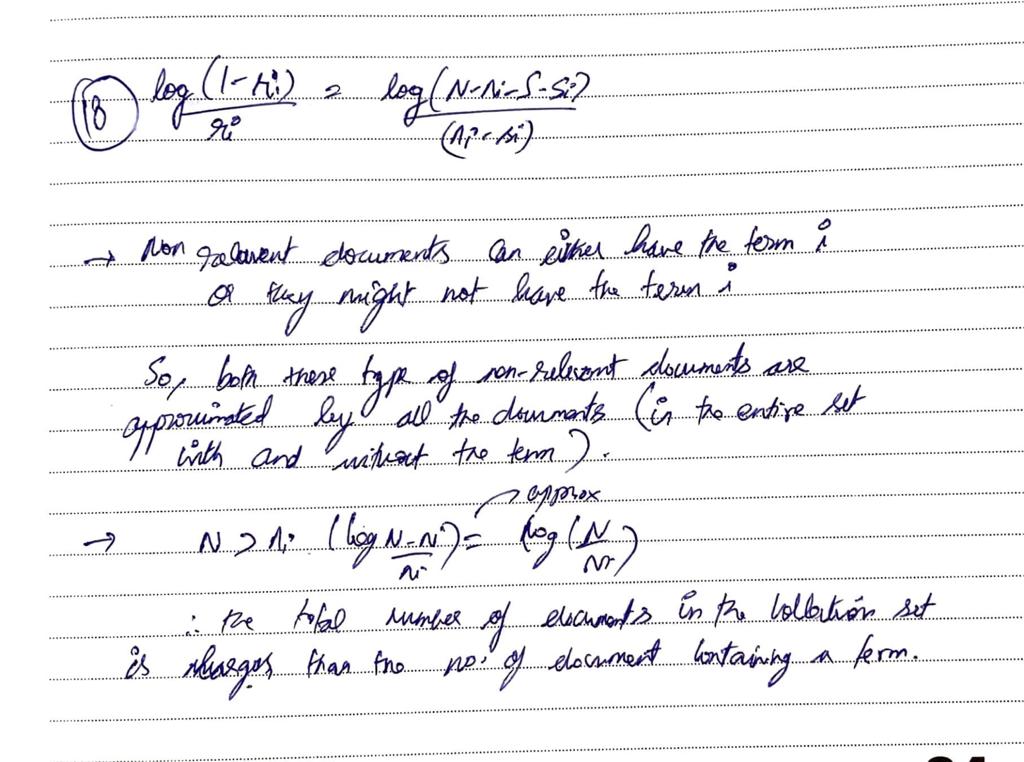 (18) log (1-ri) = log (N-ni-S-si)
ri (ni-si)
→ Non relavent documents can either have the term i
or they might not have the term i
So, both these type of non-relevant documents are
approximated by all the documents (in the entire set
with and without the term).
approx
→ N > ni (log N-Ni) = log (N
ni Ni)
∴ the total number of documents in the collection set
is larger than the no. of document containing a term.